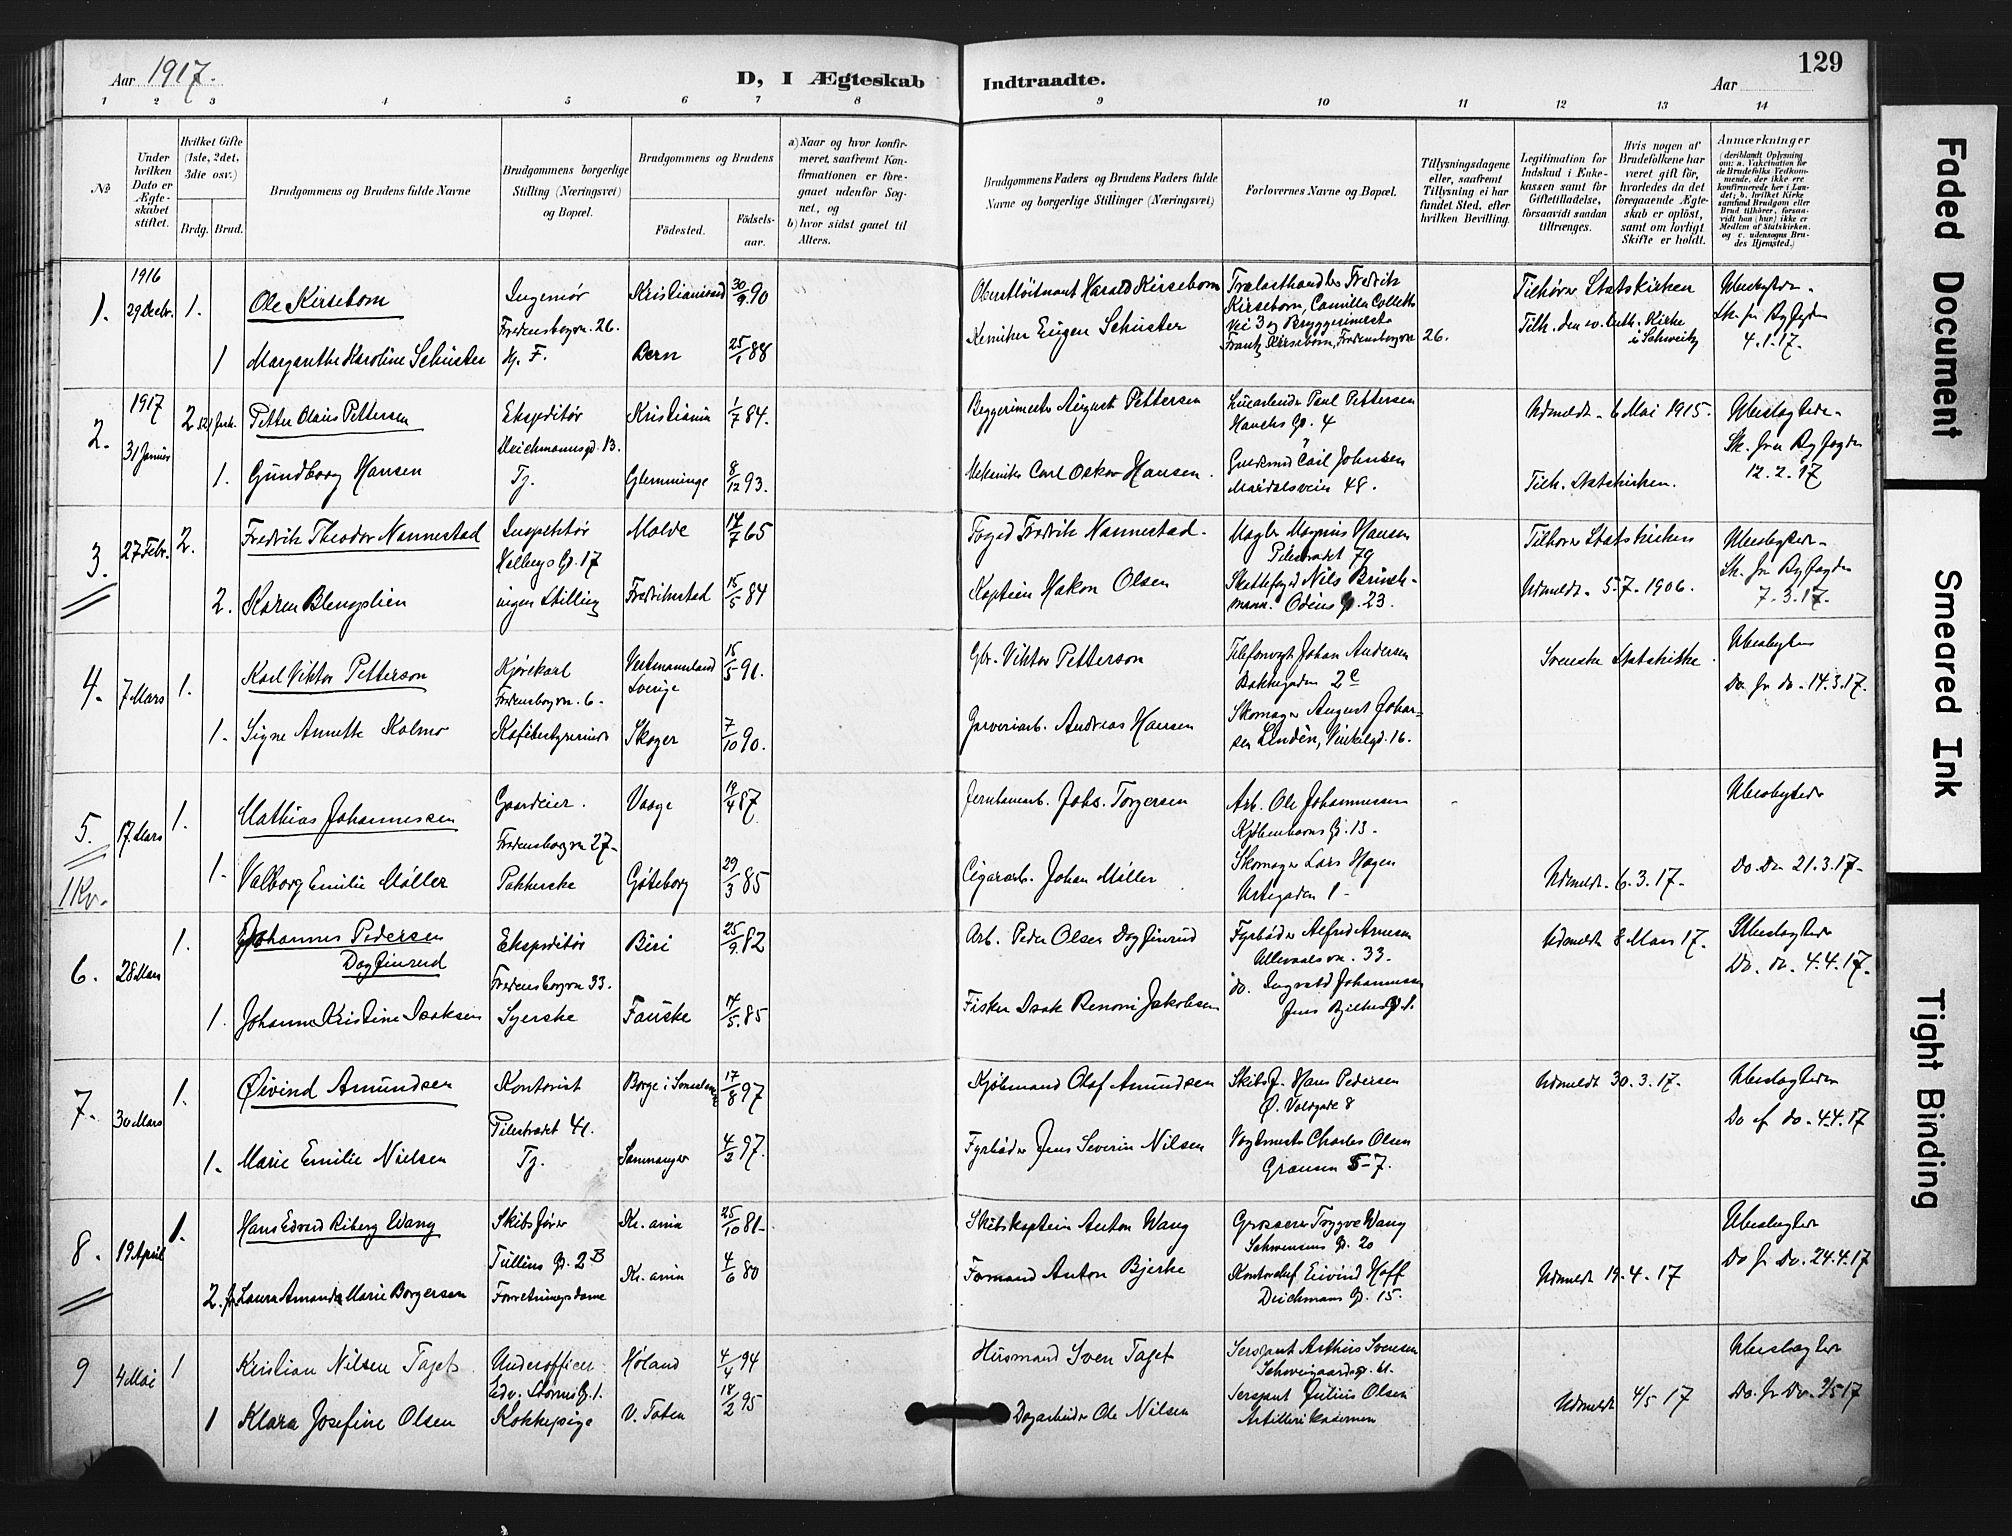 Aar 1917.
D, I Ægteskab
Indtraadte.
Aar
129
1 2 3 4 5 6 7 8 9 10 11 12 13 14
No
Under hvilken Dato er Ægteskabet stiftet.
Hvilket Gifte (1ste, 2det, 3die osv.)
Brdg. Brud.
Brudgommens og Brudens fulde Navne
Brudgommens borgerlige Stilling (Næringsvei) og Bopæl.
Brudgommens og Brudens
Födested.
Födselsaar.
a) Naar og hvor konfirmeret, saafremt Konfirmationen er foregaaet udenfor Sognet, og
b) hvor sidst gaaet til Alters.
Brudgommens Faders og Brudens Faders fulde Navne og borgerlige Stillinger (Næringsvei)
Forlovernes Navne og Bopæl.
Tillysningsdagene eller, saafremt Tillysning ei har fundet Sted, efter hvilken Bevilling.
Legitimation for Indskud i Enkekassen samt for Giftetilladelse, forsaavidt saadan tiltrænges.
Hvis nogen af Brudefolkene har været gift før, hvorledes da det foregaaende Ægteskab er oplöst, samt om lovligt Skifte er holdt.
Anmærkninger
(deriblandt Oplysning om: a. Vakcination for de Brudefolks Vedkommende, der ikke ere konfirmerede her i Landet; b. hvilket Kirkesamfund Brudgom eller Brud tilhörer, forsaavidt han (hun) ikke er Medlem af Statskirken. og c. udensogns Brudes Hjemsted.)
1. 1916 29 Decbr. 1. Ole Kirsebom Ingeniør Kristianssand 30/9 90 Oberstløitnant Harald Kirsebom Trælasthandler Fredrik Tilhører Statskirken Ubeslægtede.
Fredensborgvn. 26. Kirsebom, Camilla Colletts Vei 3 og Bryggerimester Sk. fra Byfogden
1 Margarethe Karoline Schuster Hj. F. Bern 25/1 88 Kemiker Eugen Schuster Frantz Kirsebom, Fredensborgvn 26. Tilh. den ev. luth. Kirke i Schweitz 4.1.17.
2. 1917 31 Januar 2 Petter Olaus Pettersen Ekspeditør Kristiania 1/7 84. Bryggerimester August Pettersen Paul Pettersen Udmeldt 6 Mai 1915. Ubeslægtede
Deichmannsgd. 13. Hauchs Gd. 4 Sk. fra Byfogden
1. Gundborg Hansen Tj. Glemminge 8/12 93. Mekaniker Carl Oskar Hansen. Guldsmed Carl Johnsen Maridalsvein 48. Tilh. Statskirken. 12.2.17
3. 27 Febr. 2. Fredrik Theodor Nannestad Inspektør Molde 14/7 65 Foged Fredrik Nannestad. Magnus Hansen Tilhører Statskirken Ubeslægtede
Holbergs Gd. 17 Pilestrædet 79 Sk. fra Byfogden
2. Karen Blengslien ingen Stilling Fredrikstad 15/5 84 Kaptein Hakon Olsen Skattefoged Nils Brinchmann. Odins G. 23. Udmeldt. 5.7.1906. 7.3.17.
4. 7 Mars 1. Karl Viktor Petterson Kjørekarl Vestmannland Sverige 15/5 91. Gbr. Viktor Petterson Telefonvogt Johan Andersen Svenske Statskirke. Ubeslægtede
Fredensborgvn. 6. Bakkegaden 2c Do. fr. do. 14.3.17.
1. Signe Annette Holmo Kafébestyrerinde Skoger 7/10 90. Garveriarb. Andreas Hansen Skomager August Johansen Lindén, Vinkelgd. 16.
5. 17. Mars 1. Mathias Johannessen Gaardeier. Vaage 19/4 87 Jernbanearb. Johs. Torgersen Arb. Ole Johannessen Ubeslægtede
Fredensborgvn 27. Kjøbenhavns G. 13.
1 Kv. 1. Valborg Emilie Møller Pakkerske Gøteborg 29/3 85 Cigararb. Johan Müller Skomager Lars Hagen Urtegaden 1 Udmeldt. 6.3.17. Do. Do 21.3.17.
6. 28 Mars 1. Johannes Pedersen Dagfinrud Ekspeditør Biri 25/9 82 Arb. Peder Olsen Dagfinrud Fyrbøder Alfred Arnesen Udmeldt 8 Mars 17. Ubeslægtede
Fredensborgvn 33. Ullevaalsvn. 33. Do. do. 4.4.17.
1. Johanne Kristine Isaksen Syerske Fauske 14/5 85 Fisker Isak Benoni Jakobsen do. Ingvald Johannessen Jens Bjelkes G. 1.
7. 30 Mars 1. Øivind Amundsen Kontorist Borge i Smaalene 17/8 97 Kjøbmand Olaf Amundsen Skibsf. Hans Pedersen Udmeldt 30.3.17. Ubeslægtede
Pilestrædet 41. Ø. Voldgade 8 Do. f. do. 4.4.17
1. Marie Emilie Nielsen Tj. Samnanger 4/3 97. Fyrbøder Jens Severin Nilsen Vogtmester Charles Olsen Grænsen 5-7.
8. 19 April 1. Hans Edvard Riberg Wang Skibsfører Kr.ania 25/10 81 Skibskaptein Anton Wang Grosserer Trygve Wang Ubeslægtede
Tullins G. 2B Schwensens G. 20 Do fr Do. 24.4.17
2. fr. Laura Amanda Marie Borgersen Forretningsdame Kr.ania 4/6 80 Formand Anton Bjerke Kontorchef Eivind Hoff Deichmans G. 15. Udmeldt 19.4.17
9 4 Mai 1 Kristian Nilsen Taget Underofficer Høland 4/4 94 Husmand Sven Taget Sersjant Arthur Svensen Ubeslægtede
Edv. Storms G. 1. Schweigaardsg. 61.
1 Klara Josefine Olsen Kokkepige V. Toten 18/2 95 Dagarbeider Ole Nilsen Sersjant Julius Olsen Artillerikasernen Udmeldt 4/5 17 Do. fr Do. 9/5 17
Faded Document
Smeared Ink
Tight Binding